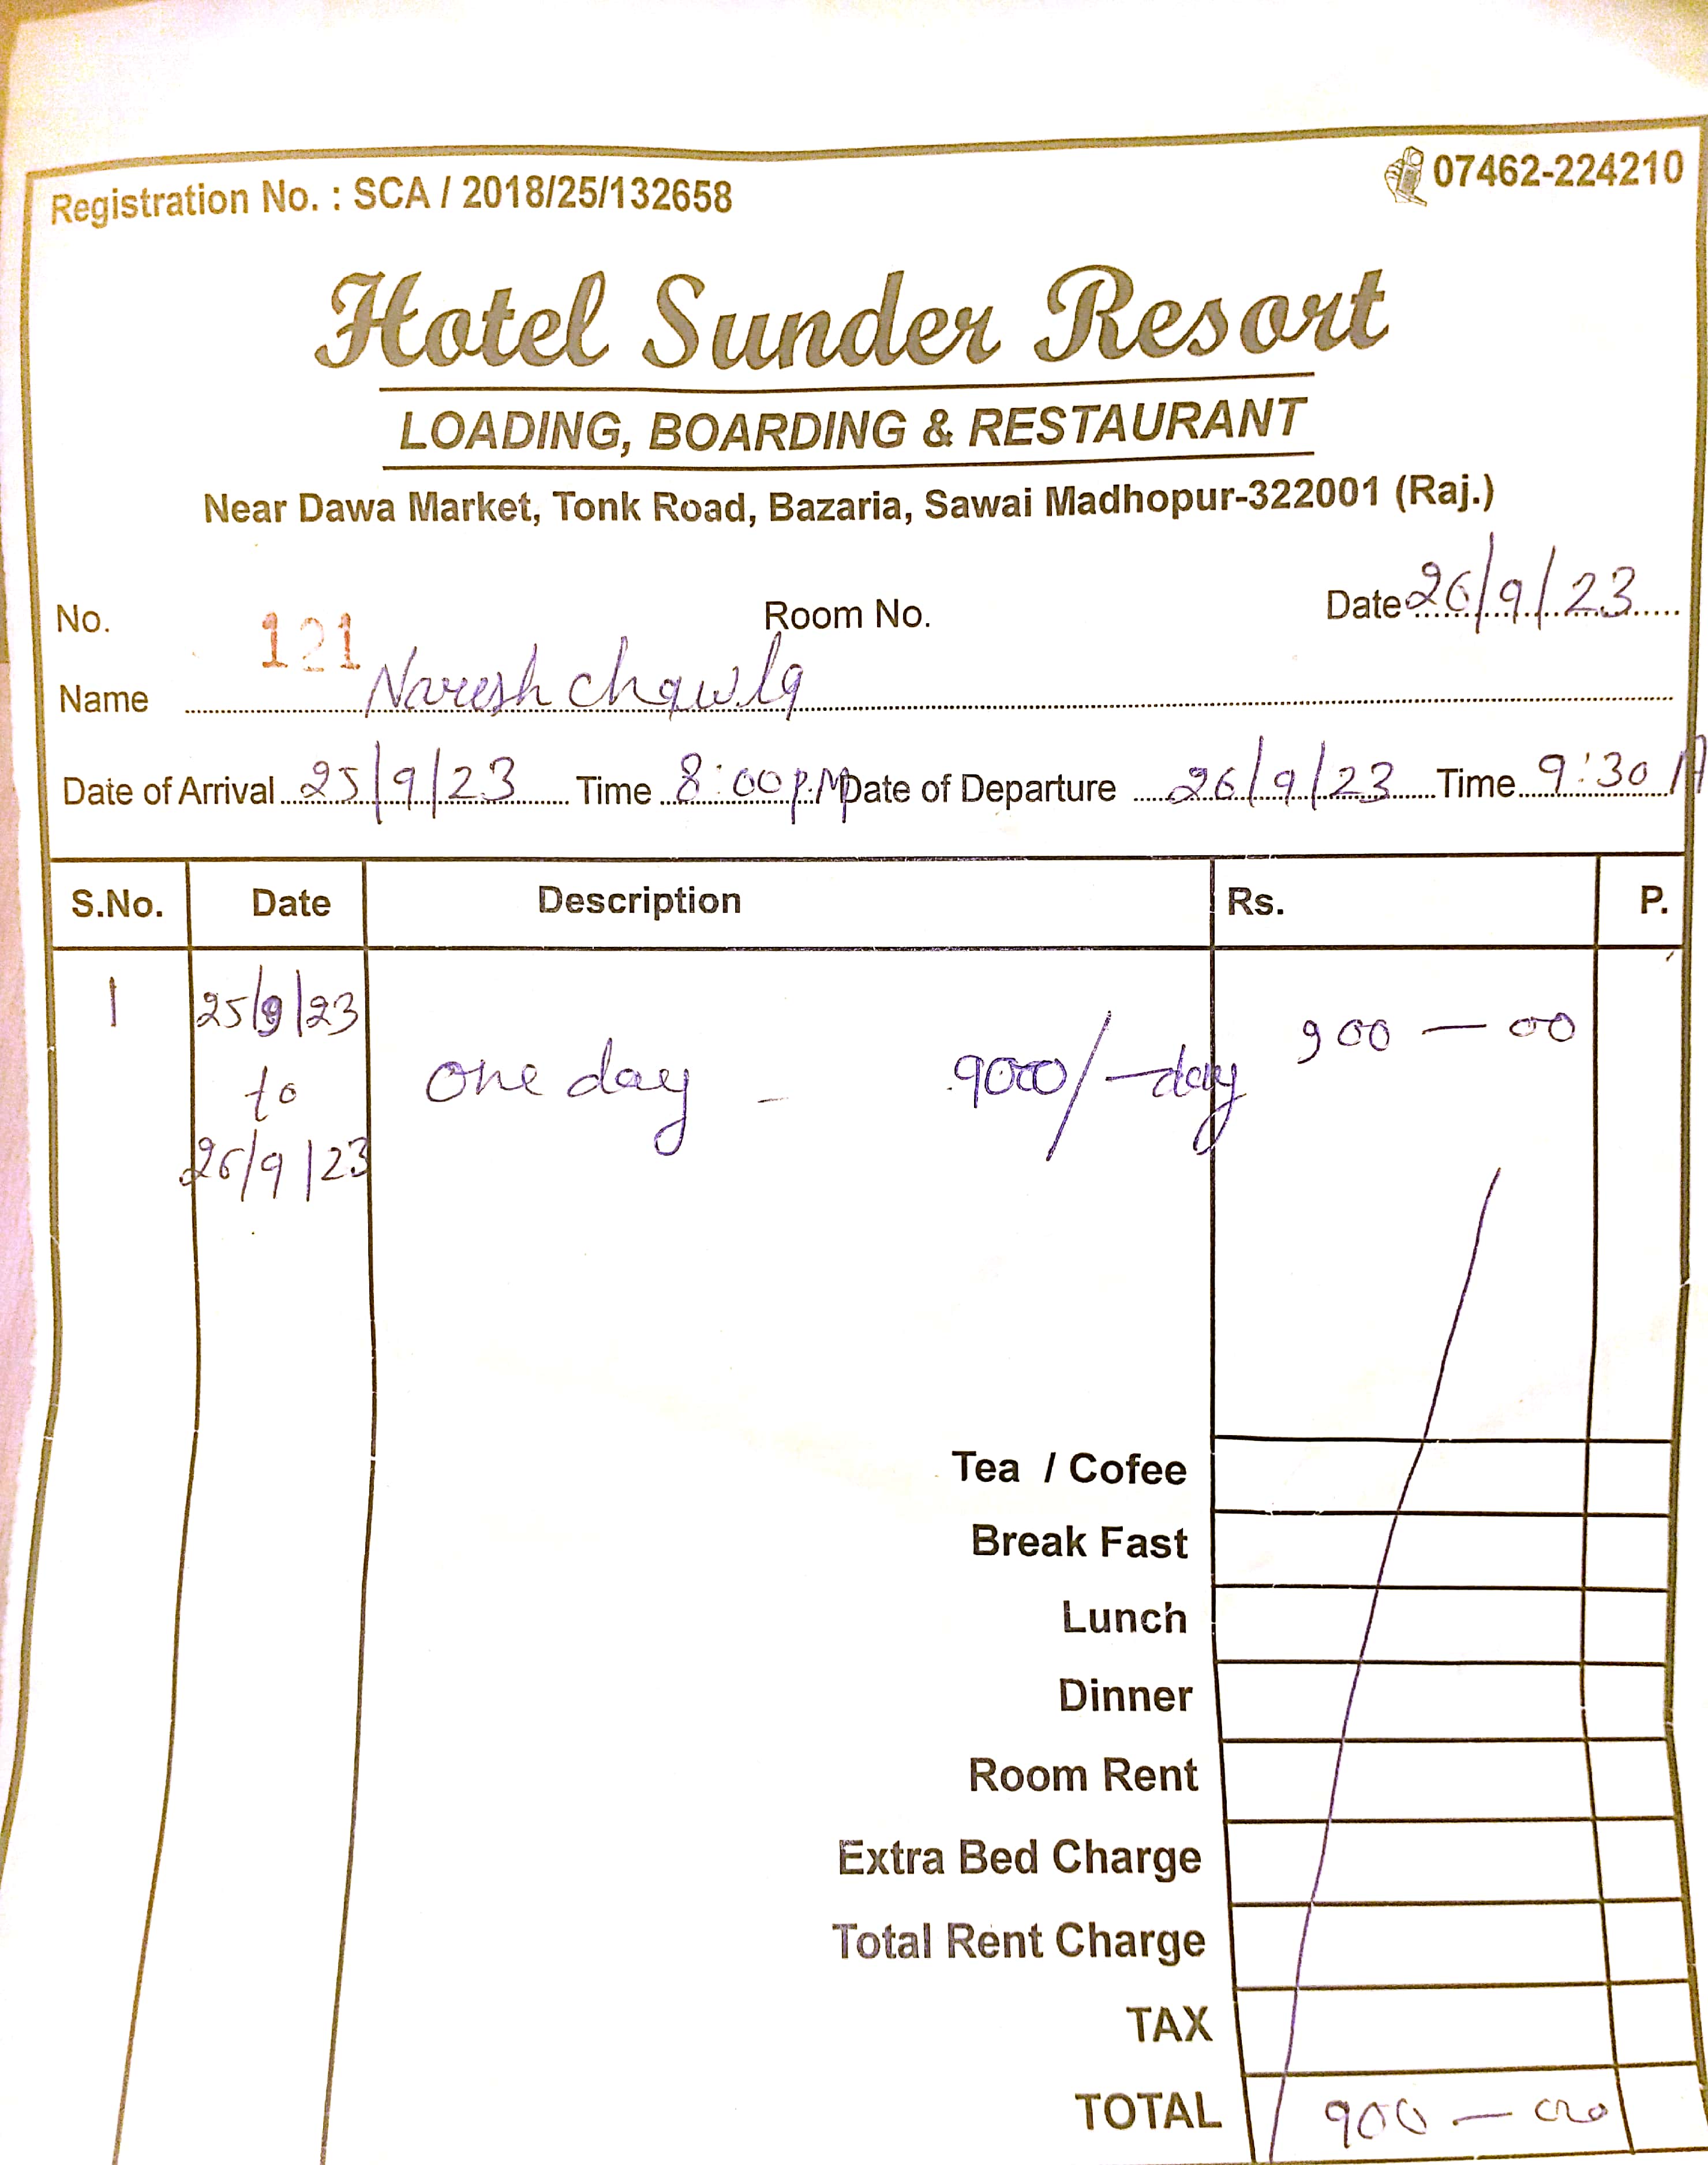 Registration No. : SCA / 2018/25/132658 07462-224210
Hotel Sunder Resort
LOADING, BOARDING & RESTAURANT
Near Dawa Market, Tonk Road, Bazaria, Sawai Madhopur-322001 (Raj.)
No. 121 Room No. Date 26/9/23
Name Naresh chawla
Date of Arrival 25/9/23 Time 8:00 P.M Date of Departure 26/9/23 Time 9:30 A
S.No. Date Description Rs. P.
1 25/9/23 900 — 00
to one day - /-day
26/9/23
Tea / Cofee
Break Fast
Lunch
Dinner
Room Rent
Extra Bed Charge
Total Rent Charge
TAX
TOTAL 900 — 00